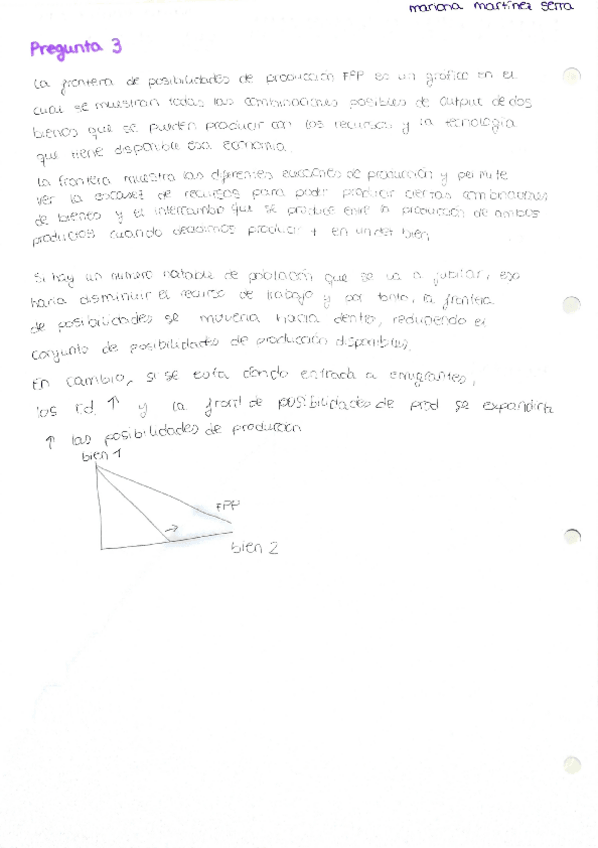 mariona martínez serra
Pregunta 3
La frontera de posibilidades de producción FPP es un gráfico en el
cual se muestran todas las combinaciones posibles de output de dos
bienes que se pueden producir con los recursos y la tecnología
que tiene disponible esa economía.
La frontera muestra las diferentes de producción y permite
ver la escasez de recursos para poder producir ciertas combinaciones
de bienes y el intercambio que se produce entre la producción de ambos
productos cuando decidimos producir + en un bien.
Si hay un número notable de población que se va a jubilar, eso
haría disminuir el recurso de trabajo y por tanto, la frontera
de posibilidades se movería hacia dentro, reduciendo el
conjunto de posibilidades de producción disponibles.
En cambio, si se está dando entrada a emigrantes,
los rd. ↑ y la front de posibilidades de prod se expandiría
↑ las posibilidades de producción
bien 1
FPP
→
bien 2